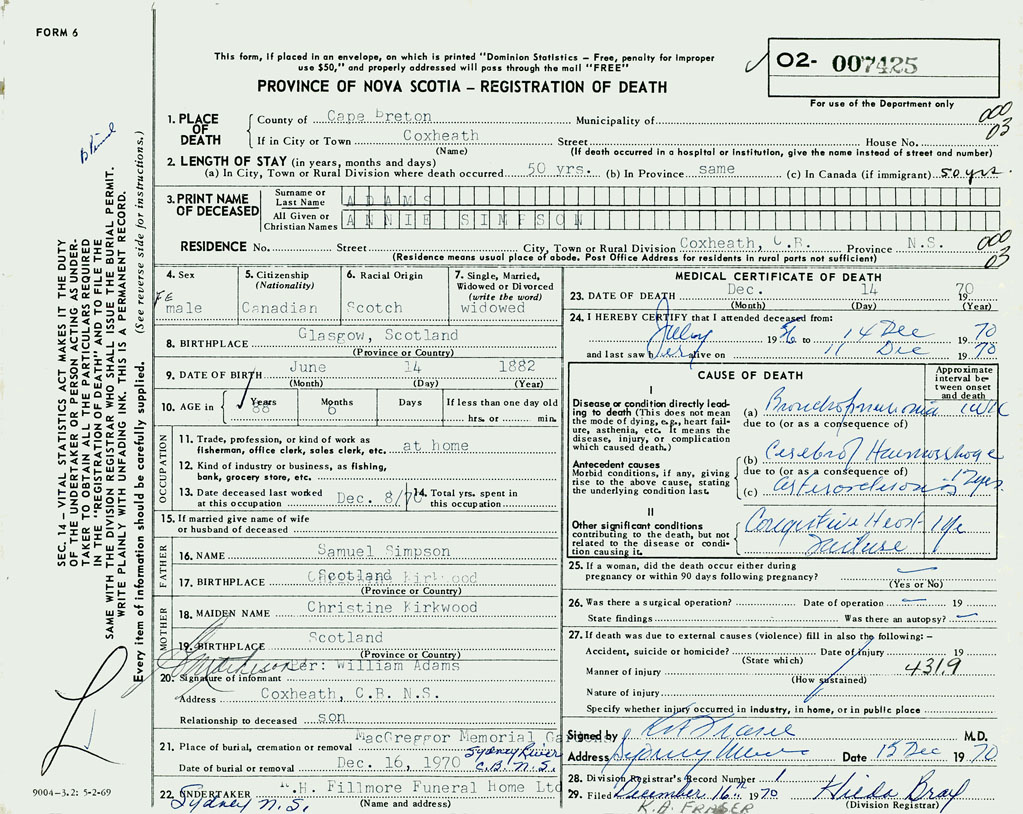 FORM 6
This form, if placed in an envelope, on which is printed "Dominion Statistics – Free, penalty for improper
use $50," and properly addressed will pass through the mail "FREE"
PROVINCE OF NOVA SCOTIA – REGISTRATION OF DEATH
O2- 007425
For use of the Department only
000
03
1. PLACE OF DEATH
County of Cape Breton Municipality of
If in City or Town Coxheath Street House No.
(Name) (If death occurred in a hospital or institution, give the name instead of street and number)
2. LENGTH OF STAY (in years, months and days)
(a) In City, Town or Rural Division where death occurred 50 yrs. (b) In Province same (c) In Canada (if immigrant) 50 yrs.
3. PRINT NAME OF DECEASED
Surname or Last Name ADAMS
All Given or Christian Names ANNIE SIMPSON
RESIDENCE No. Street City, Town or Rural Division Coxheath, C.B. Province N.S.
000
03
(Residence means usual place of abode. Post Office Address for residents in rural parts not sufficient)
4. Sex
FE
male
5. Citizenship
(Nationality)
Canadian
6. Racial Origin
Scotch
7. Single, Married,
Widowed or Divorced
(write the word)
widowed
8. BIRTHPLACE Glasgow, Scotland
(Province or Country)
9. DATE OF BIRTH June 14 1882
(Month) (Day) (Year)
10. AGE in
Years
88
Months
6
Days
If less than one day old
hrs. or min.
OCCUPATION
11. Trade, profession, or kind of work as
fisherman, office clerk, sales clerk, etc. at home
12. Kind of industry or business, as fishing,
bank, grocery store, etc.
13. Date deceased last worked
at this occupation Dec. 8/70
14. Total yrs. spent in
this occupation
15. If married give name of wife
or husband of deceased
FATHER
16. NAME Samuel Simpson
17. BIRTHPLACE Scotland
(Province or Country)
MOTHER
18. MAIDEN NAME Christine Kirkwood
19. BIRTHPLACE Scotland
(Province or Country)
per: William Adams
20. Signature of informant
Address Coxheath, C.B. N.S.
Relationship to deceased son
21. Place of burial, cremation or removal MacGreggor Memorial
Sydney River
C.B. N.S.
Date of burial or removal Dec. 16, 1970
22. UNDERTAKER .H. Fillmore Funeral Home Ltd
(Name and address)
Sydney N.S.
MEDICAL CERTIFICATE OF DEATH
23. DATE OF DEATH Dec. 14 1970
(Month) (Day) (Year)
24. I HEREBY CERTIFY that I attended deceased from:
July 1956 to 14 Dec 1970
and last saw her alive on 11 Dec 1970
CAUSE OF DEATH
Approximate
interval be-
tween onset
and death
I
Disease or condition directly lead-
ing to death (This does not mean
the mode of dying, e.g., heart fail-
ure, asthenia, etc. It means the
disease, injury, or complication
which caused death.)
(a) Bronchopneumonia 1 WK
due to (or as a consequence of)
Antecedent causes
Morbid conditions, if any, giving
rise to the above cause, stating
the underlying condition last.
(b) Cerebral Haemorrhage
due to (or as a consequence of)
(c) arteriosclerosis
II
Other significant conditions
contributing to the death, but not
related to the disease or condi-
tion causing it.
Congestive Heart
Failure
25. If a woman, did the death occur either during
pregnancy or within 90 days following pregnancy?
(Yes or No)
26. Was there a surgical operation? Date of operation 19
State findings Was there an autopsy?
27. If death was due to external causes (violence) fill in also the following: –
Accident, suicide or homicide? Date of injury 19
(State which)
4319
Manner of injury
(How sustained)
Nature of injury
Specify whether injury occurred in industry, in home, or in public place
Signed by M.D.
Address Sydney Date 15 Dec 1970
28. Division Registrar's Record Number 1
29. Filed December 16th 1970 Hilda Bray
(Division Registrar)
K.A. FRASER
SEC. 14 – VITAL STATISTICS ACT MAKES IT THE DUTY
OF THE UNDERTAKER OR PERSON ACTING AS UNDER-
TAKER TO OBTAIN ALL THE PARTICULARS REQUIRED
IN THE "REGISTRATION OF DEATH" AND TO FILE THE
SAME WITH THE DIVISION REGISTRAR WHO SHALL ISSUE THE BURIAL PERMIT.
WRITE PLAINLY WITH UNFADING INK. THIS IS A PERMANENT RECORD.
Every item of information should be carefully supplied. (See reverse side for instructions.)
9004-3.2: 5-2-69